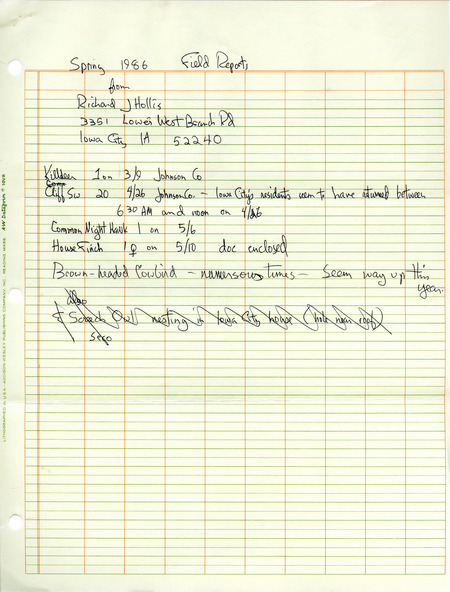 Spring 1986 Field Reports
from
Richard J Hollis
3351 Lower West Branch Rd
Iowa City IA 52240
Killdeer 1 on 3/9 Johnson Co
Cliff Sw 20 4/26 Johnson Co. - Iowa City's residents seem to have returned between
6:30 AM and noon on 4/26
Common Night Hawk 1 on 5/6
House Finch 1♀ on 5/10 doc enclosed
Brown-headed Cowbird - numerous times - seem way up this
year.
also
Screech Owl nesting in Iowa City house (hole near roof)
LITHOGRAPHED IN U.S.A. - ADDISON-WESLEY PUBLISHING COMPANY, INC. READING, MASS.